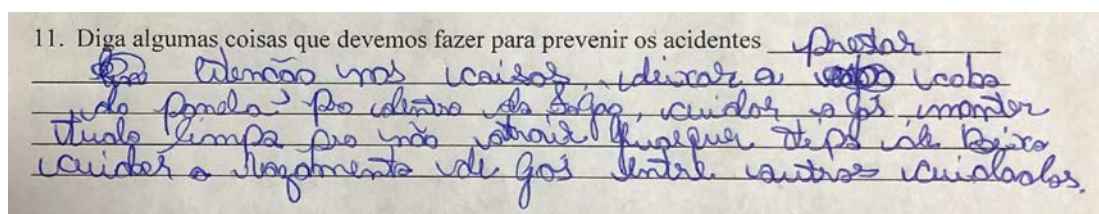 11. Diga algumas coisas que devemos fazer para prevenir os acidentes prestar
atenção nos coisas, deixar a cabo
da panela pro dentro do fogão, cuidar o gás, manter
tudo limpa pro não atrair qualquer tipo de Bixo
cuidar o vazamento de gás entre outros cuidados.